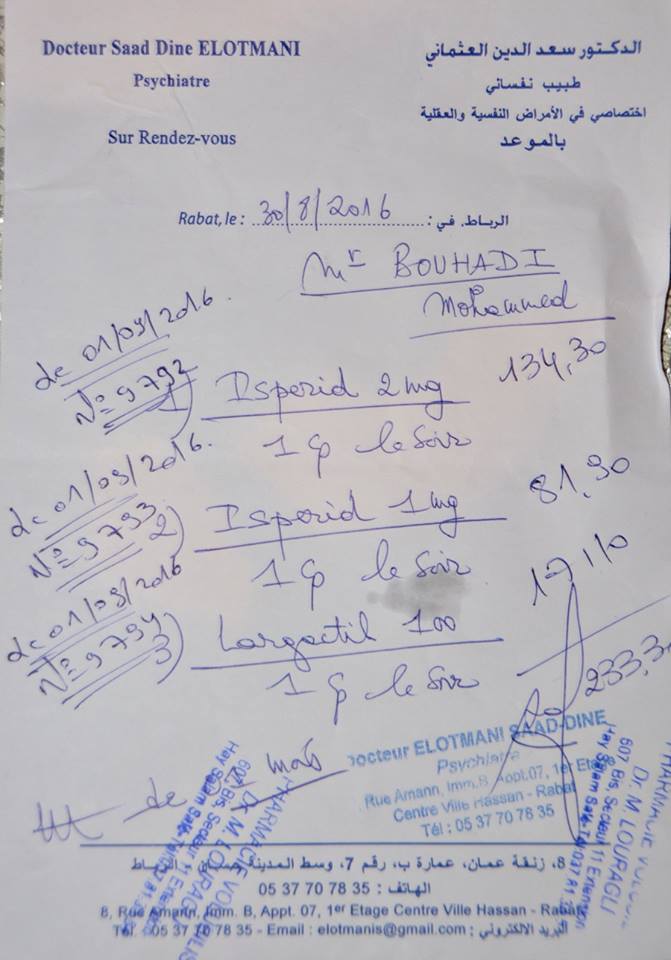 Docteur Saad Dine ELOTMANI
Psychiatre
Sur Rendez-vous
الدكتور سعد الدين العثماني
طبيب نفساني
اختصاصي في الأمراض النفسية والعقلية
بالموعد
Rabat, le : 30/8/2016 الرباط، في :
Mr BOUHADI
Mohammed
de 01/09/2016.
N° 9792
1) Isperid 2mg 134,30
1 cp le soir
de 01/09/2016.
N° 9793
2) Isperid 1mg 81,90
1 cp le soir
de 01/09/2016
N° 9794
3) Largactil 100 17,10
1 cp le soir
233,3
de mois
Docteur ELOTMANI SAAD-DINE
Psychiatre
Rue Amann, Imm.B Appt.07, 1er Etage
Centre Ville Hassan - Rabat
Tél : 05 37 70 78 35
PHARMACIE
Dr. M. LOURAGLI
607 Bis, Secteur 11 Extension
Hay Salam Salé
PHARMACIE
Dr. M. LOURAGLI
607 Bis, Secteur 11 Extension
Hay Salam Salé
8، زنقة عمان، عمارة ب، رقم 7، وسط المدينة
الهاتف : 05 37 70 78 35
8, Rue Amann, Imm. B, Appt. 07, 1er Etage Centre Ville Hassan - Rabat
Tél. : 05 37 70 78 35 - Email : elotmanis@gmail.com : البريد الالكتروني